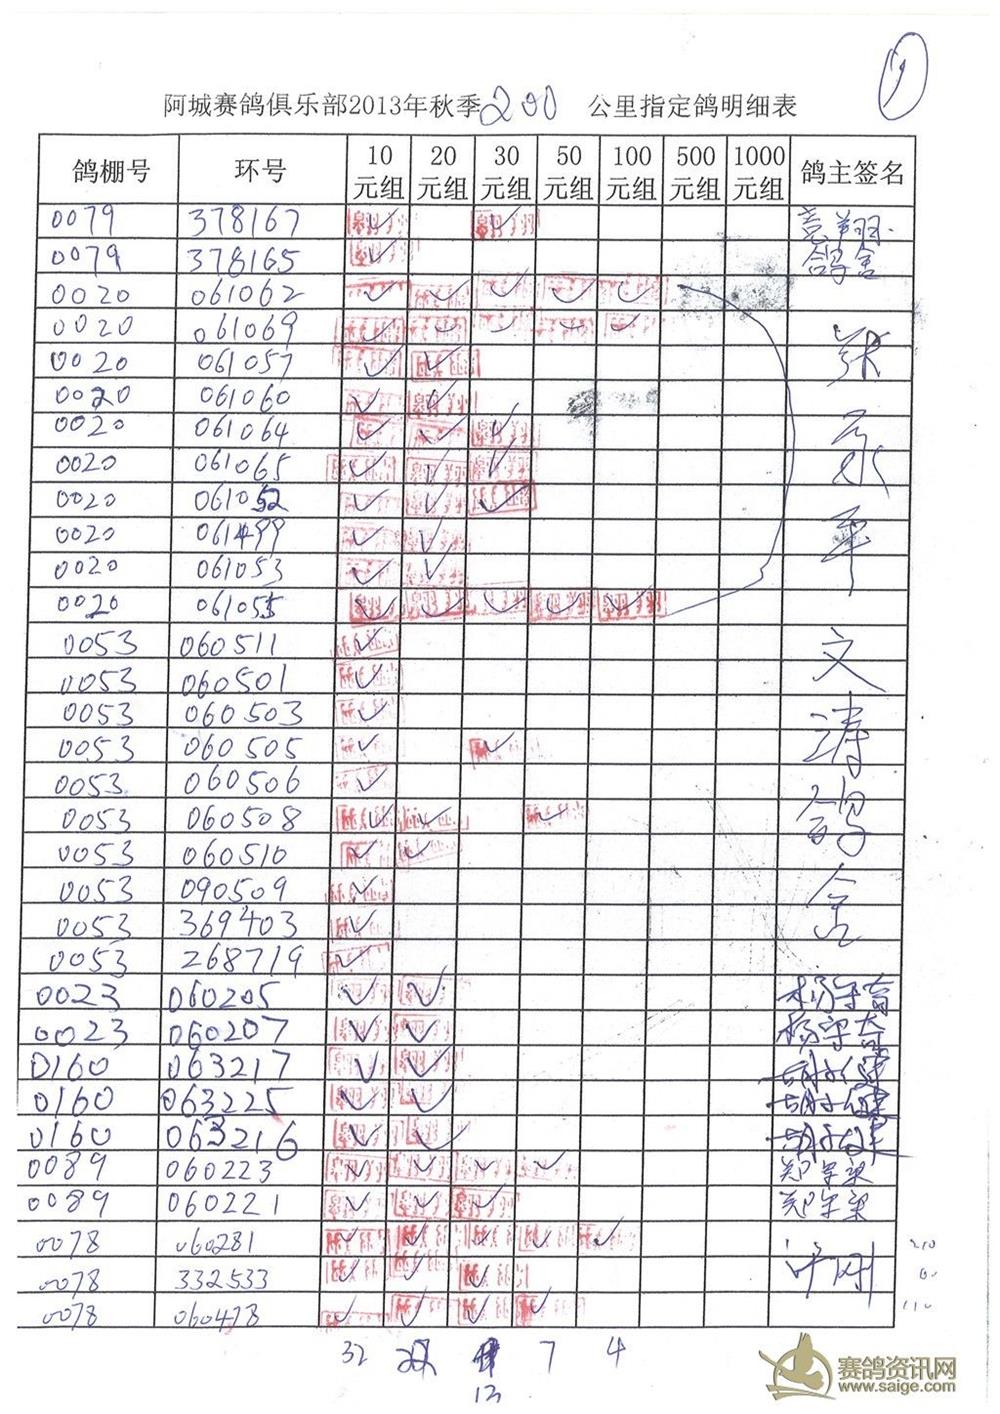 阿城赛鸽俱乐部2013年秋季200 公里指定鸽明细表
鸽棚号 环号 10元组 20元组 30元组 50元组 100元组 500元组 1000元组 鸽主签名
0079 378167 ✓ ✓
0079 378165 ✓ 鸽舍
0020 061062 ✓ ✓ ✓ ✓ ✓
0020 061069 ✓ ✓ ✓ ✓ ✓
0020 061057 ✓ ✓ 张
0020 061060 ✓ ✓
0020 061064 ✓ ✓ ✓
0020 061065 ✓ ✓ ✓ 永
0020 061052 ✓ ✓ ✓
0020 061499 ✓ ✓ 军
0020 061053 ✓ ✓
0020 061055 ✓ ✓ ✓ ✓ ✓
0053 060511 ✓ 文
0053 060501 ✓
0053 060503 ✓ 涛
0053 060505 ✓ ✓
0053 060506 ✓
0053 060508 ✓ ✓ ✓ 鸽
0053 060510 ✓ ✓
0053 090509 ✓
0053 369403 ✓ 舍
0053 268719 ✓
0023 060205 ✓ ✓ 杨守奇
0023 060207 ✓ ✓ 杨守奇
0160 063217 ✓ ✓
0160 063225 ✓ ✓
0160 063216 ✓ ✓
0089 060223 ✓ ✓ ✓ ✓
0089 060221 ✓ ✓ ✓
0078 060281 ✓ ✓ ✓ ✓ ✓ 210
0078 332533 ✓ ✓ ✓ 许刚 60
0078 060478 ✓ ✓ ✓ ✓ 110
32 7 4
13
赛鸽资讯网
www.saige.com